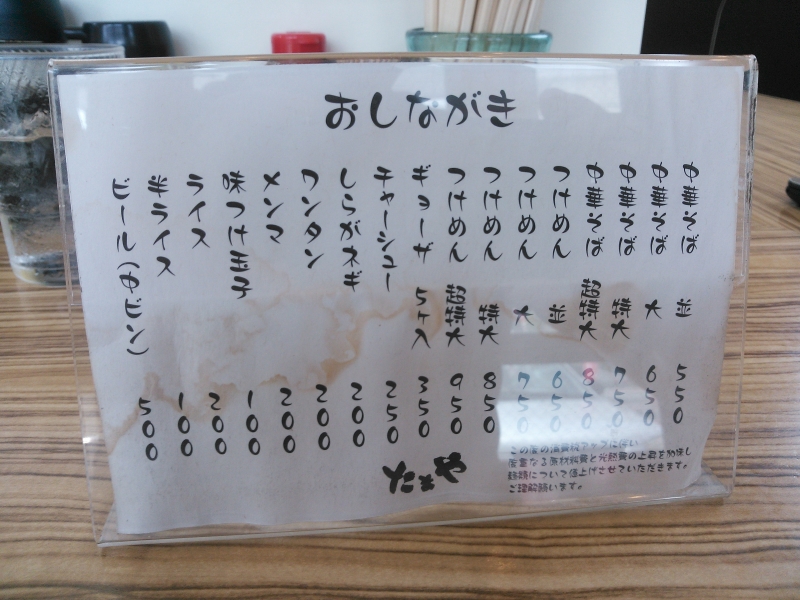 おしながき
中華そば 並 550
中華そば 大 650
中華そば 特大 750
中華そば 超特大 850
つけめん 並 650
つけめん 大 750
つけめん 特大 850
つけめん 超特大 950
ギョーザ 5ヶ入 350
チャーシュー 250
しらがネギ 200
ワンタン 200
メンマ 200
味つけ玉子 100
ライス 200
半ライス 100
ビール(中ビン) 500
この度の消費税アップに伴い
度重なる原材料費と光熱費の上昇を加味し
麺類について値上げさせていただきます。
ご理解願います。